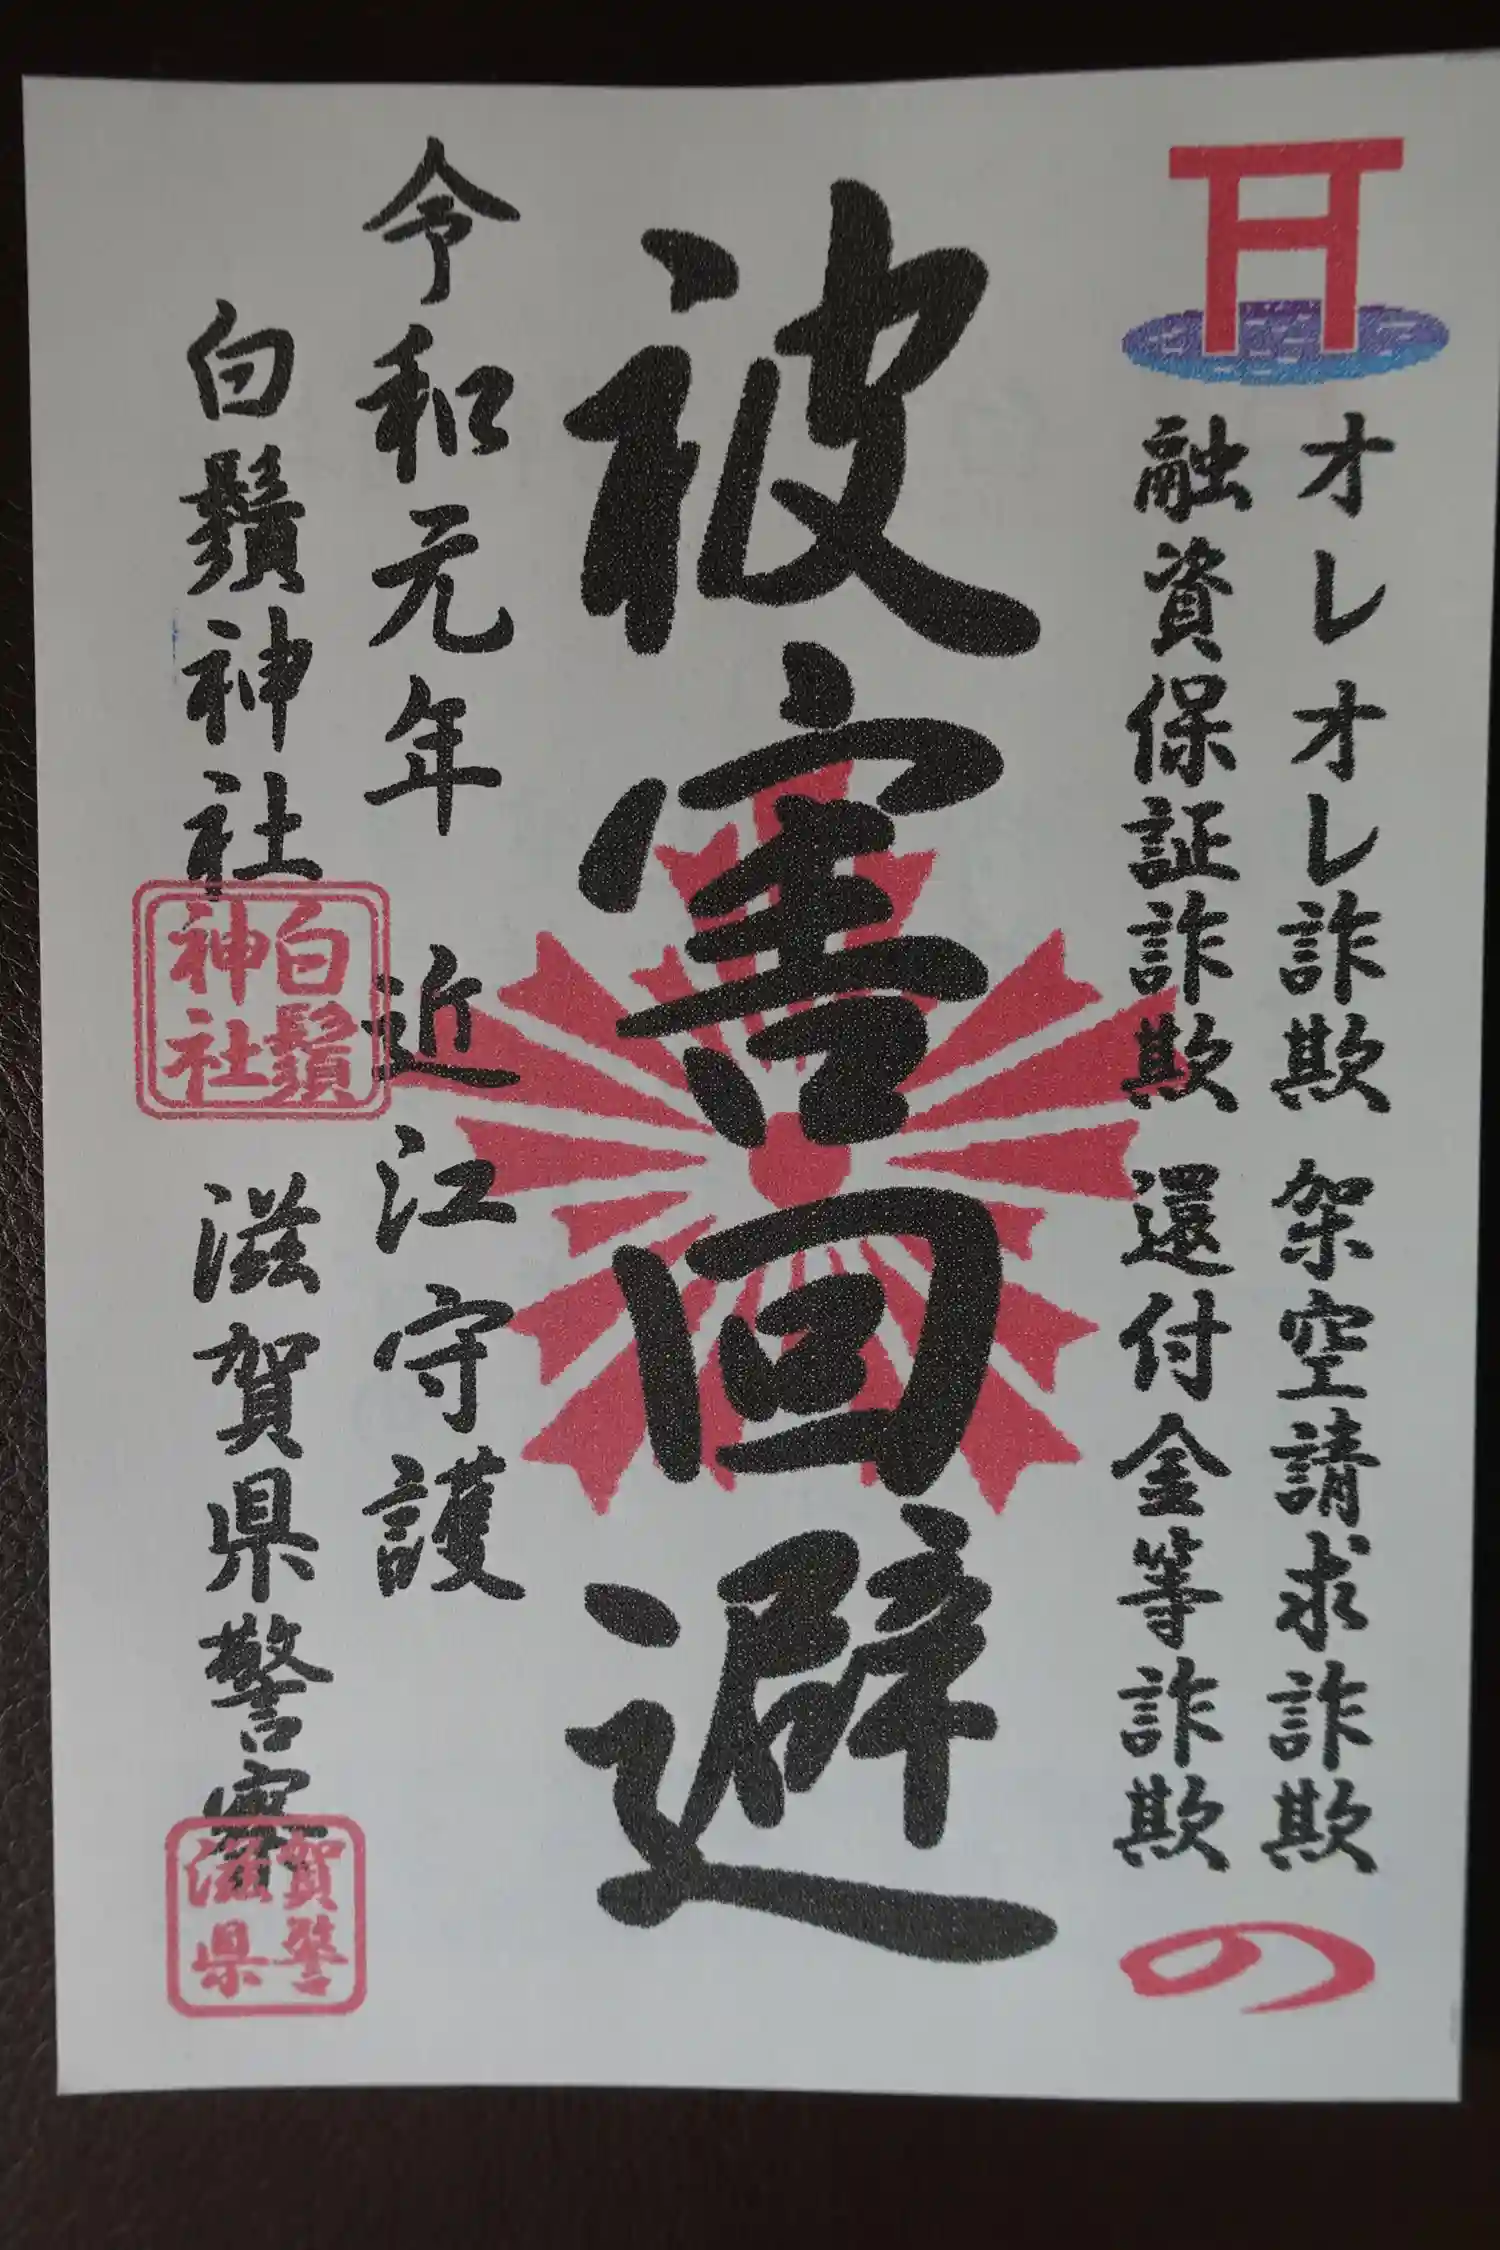 オレオレ詐欺 架空請求詐欺
融資保証詐欺 還付金等詐欺
の
被害回避
令和元年 近江守護
白鬚神社 滋賀県警察
白鬚
神社
賀警
滋県